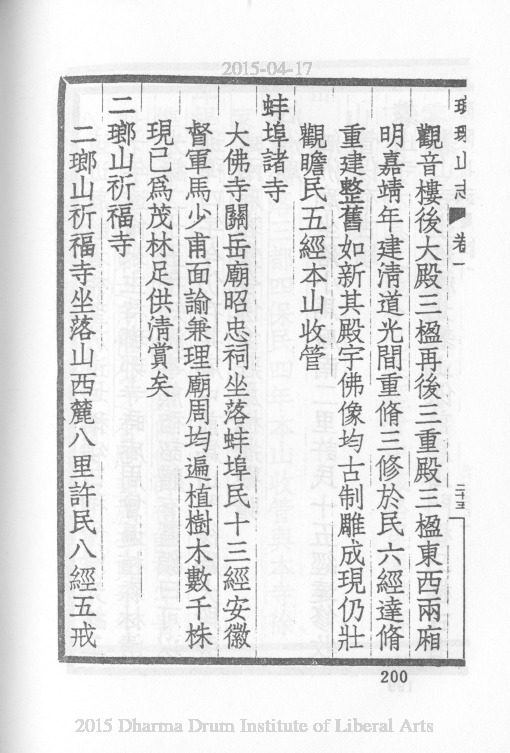 2015-04-17
琅琊山志 卷一 二十五
觀音樓後大殿三楹再後三重殿三楹東西兩廂
明嘉靖年建清道光間重脩三修於民六經達脩
重建整舊如新其殿宇佛像均古制雕成現仍壯
觀瞻民五經本山收管
蚌埠諸寺
大佛寺關岳廟昭忠祠坐落蚌埠民十三經安徽
督軍馬少甫面諭兼理廟周均遍植樹木數千株
現已爲茂林足供清賞矣
二瑯山祈福寺
二瑯山祈福寺坐落山西麓八里許民八經五戒
200
2015 Dharma Drum Institute of Liberal Arts